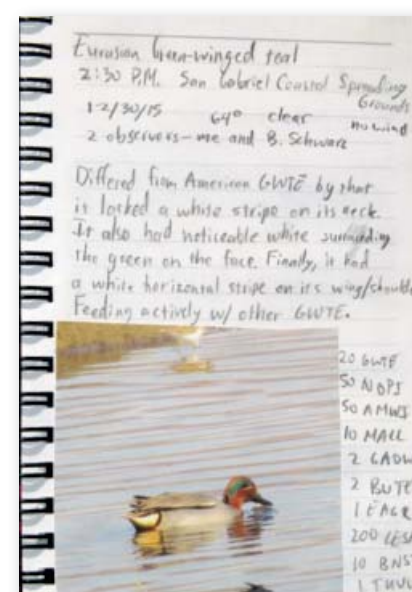 Eurasian Green-winged teal
2:30 P.M. San Gabriel Coastal Spreading
Grounds
12/30/15 64° clear no wind
2 observers - me and B. Schwarz
Differed from American GWTE by that
it lacked a white stripe on its neck.
It also had noticeable white surrounding
the green on the face. Finally, it had
a white horizontal stripe on its wing/should
Feeding actively w/ other GWTE.
20 GWTE
50 NOPI
50 AMWI
10 MALL
2 GADW
2 BUTE
1 EAGR
200 LESA
10 BNST
1 TUVU